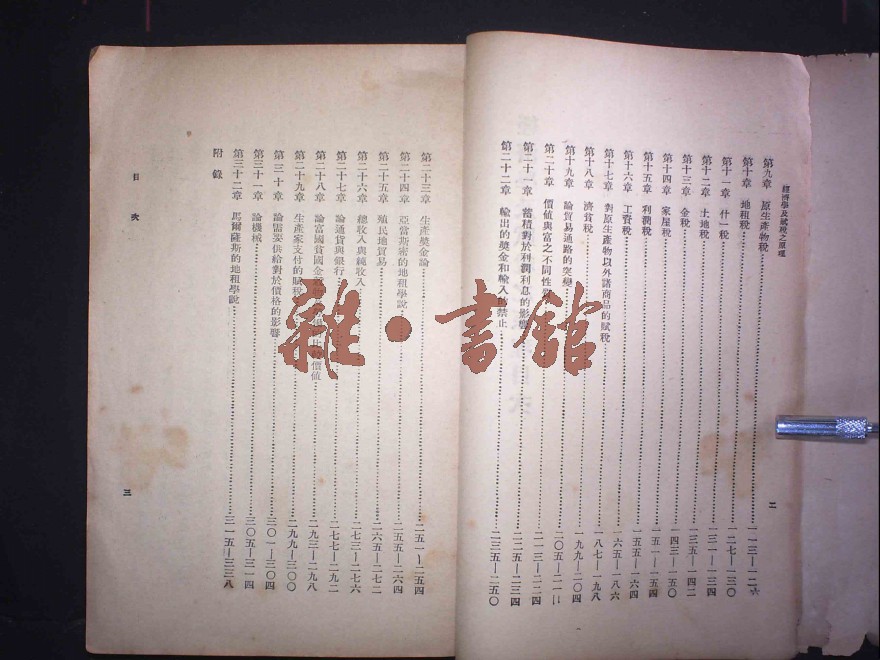 經濟學及賦稅之原理
第九章 原生產物稅 一一三—一二六
第十章 地租稅 一二七—一三〇
第十一章 什一稅 一三一—一三四
第十二章 土地稅 一三五—一四二
第十三章 金稅 一四三—一五〇
第十四章 家屋稅 一五一—一五四
第十五章 利潤稅 一五五—一六四
第十六章 工資稅 一六五—一八六
第十七章 對原生產物以外諸商品的賦稅 一八七—一九八
第十八章 濟貧稅 一九九—二〇四
第十九章 論貿易通路的突變 二〇五—二一
第二十章 價值與富之不同性 二一三—二二四
第二十一章 蓄積對於利潤利息的影響 二二五—二三四
第二十二章 輸出的獎金和輸入的禁止 二三五—二五〇
二
第二十三章 生產獎金論 二五一—二五四
第二十四章 亞當斯密的地租學說 二五五—二六四
第二十五章 殖民地貿易 二六五—二七二
第二十六章 總收入與純收入 二七三—二七六
第二十七章 論通貨與銀行 二七七—二九二
第二十八章 論富國貧國金穀物 比的價值 二九三—二九八
第二十九章 生產家支付的賦稅 二九九—三〇〇
第三十章 論需要供給對於價格的影響 三〇一—三〇四
第三十一章 論機械 三〇五—三一四
第三十二章 馬爾薩斯的地租學說 三一五—三三八
附錄
目次
三
雜·書館